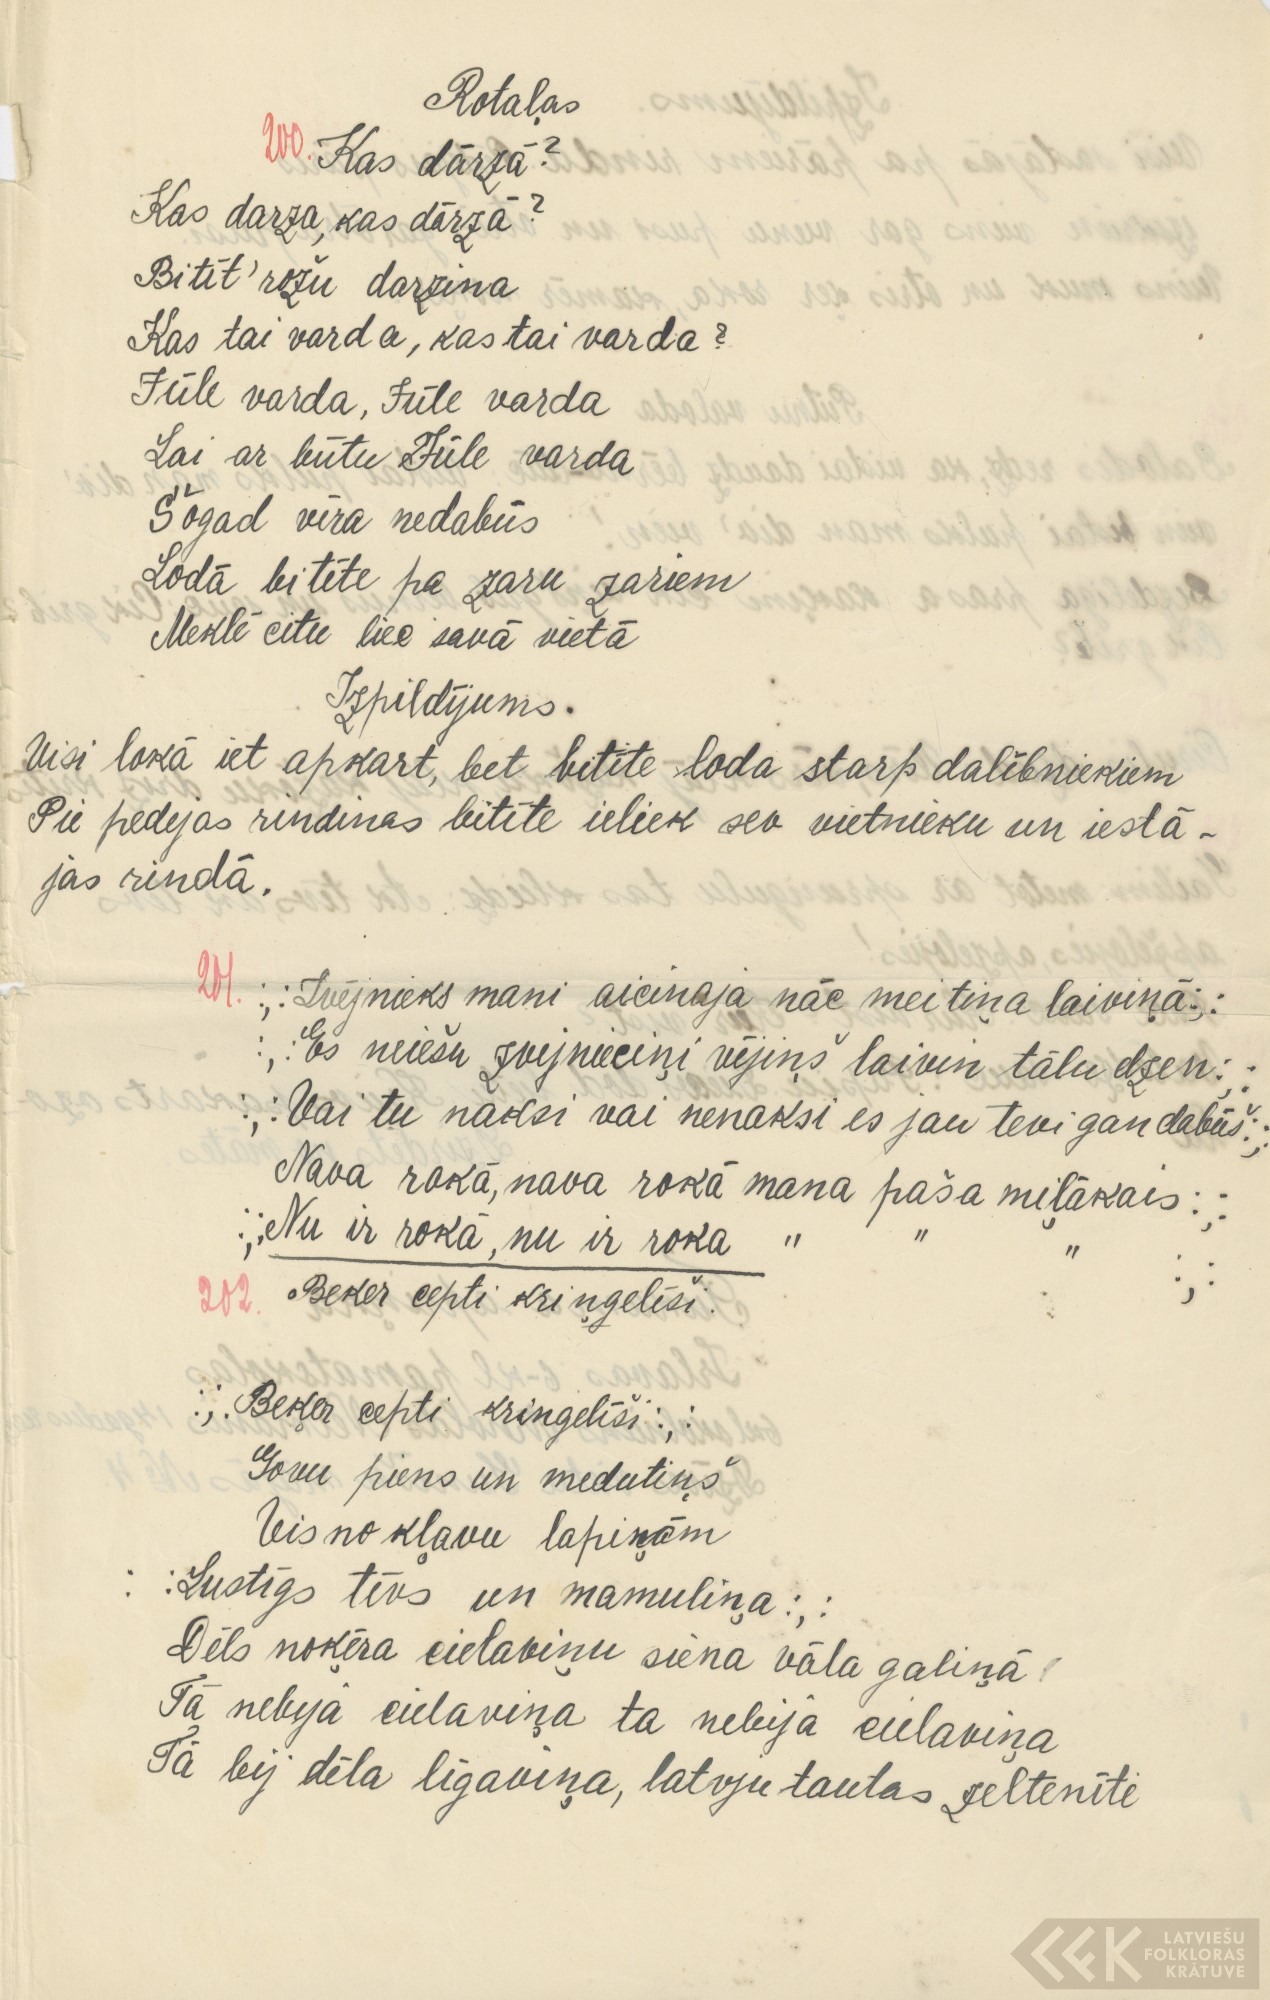 Rotaļas
200. Kas dārzā?
Kas darza, kas dārzā?
Bitīt' rožu darzina
Kas tai varda, kas tai varda?
Jūle varda, Jūle varda
Lai ar būtu Jūle varda
Šogad vīra nedabūs
Lodā bitīte pa zaru zariem
Meklē citu liec savā vietā
Izpildījums.
Visi lokā iet apkart, bet bitīte loda starp dalībniekiem
Pie pedejas rindinas bitīte ieliek sev vietnieku un iestā-
jas rindā.
201. :,: Zvējnieks mani aicinaja nāc meitiņa laiviņā :,:
:,: Es neiešu zvejnieciņi vējiņš laivin tālu dzen :,:
:,: Vai tu nāksi vai nenaksi es jau tevi gan dabūš :,:
Nava rokā, nava rokā mana paša miļākais :,:
:,: Nu ir rokā, nu ir roka " " " :,:
202. Beker cepti kriņgelīši.
:,: Beķer cepti kringelīši :,:
Govu piens un medutiņš
Vis no kļavu lapiņām
: : Lustīgs tēvs un mamuliņa :,:
Dēls noķēra cielaviņu siena vāla galiņā
Tā nebijā cielaviņa ta nebijā cielaviņa
Tā bij dēla līgaviņa, latvju tautas zeltenīte
LATVIEŠU
FOLKLORAS
KRĀTUVE